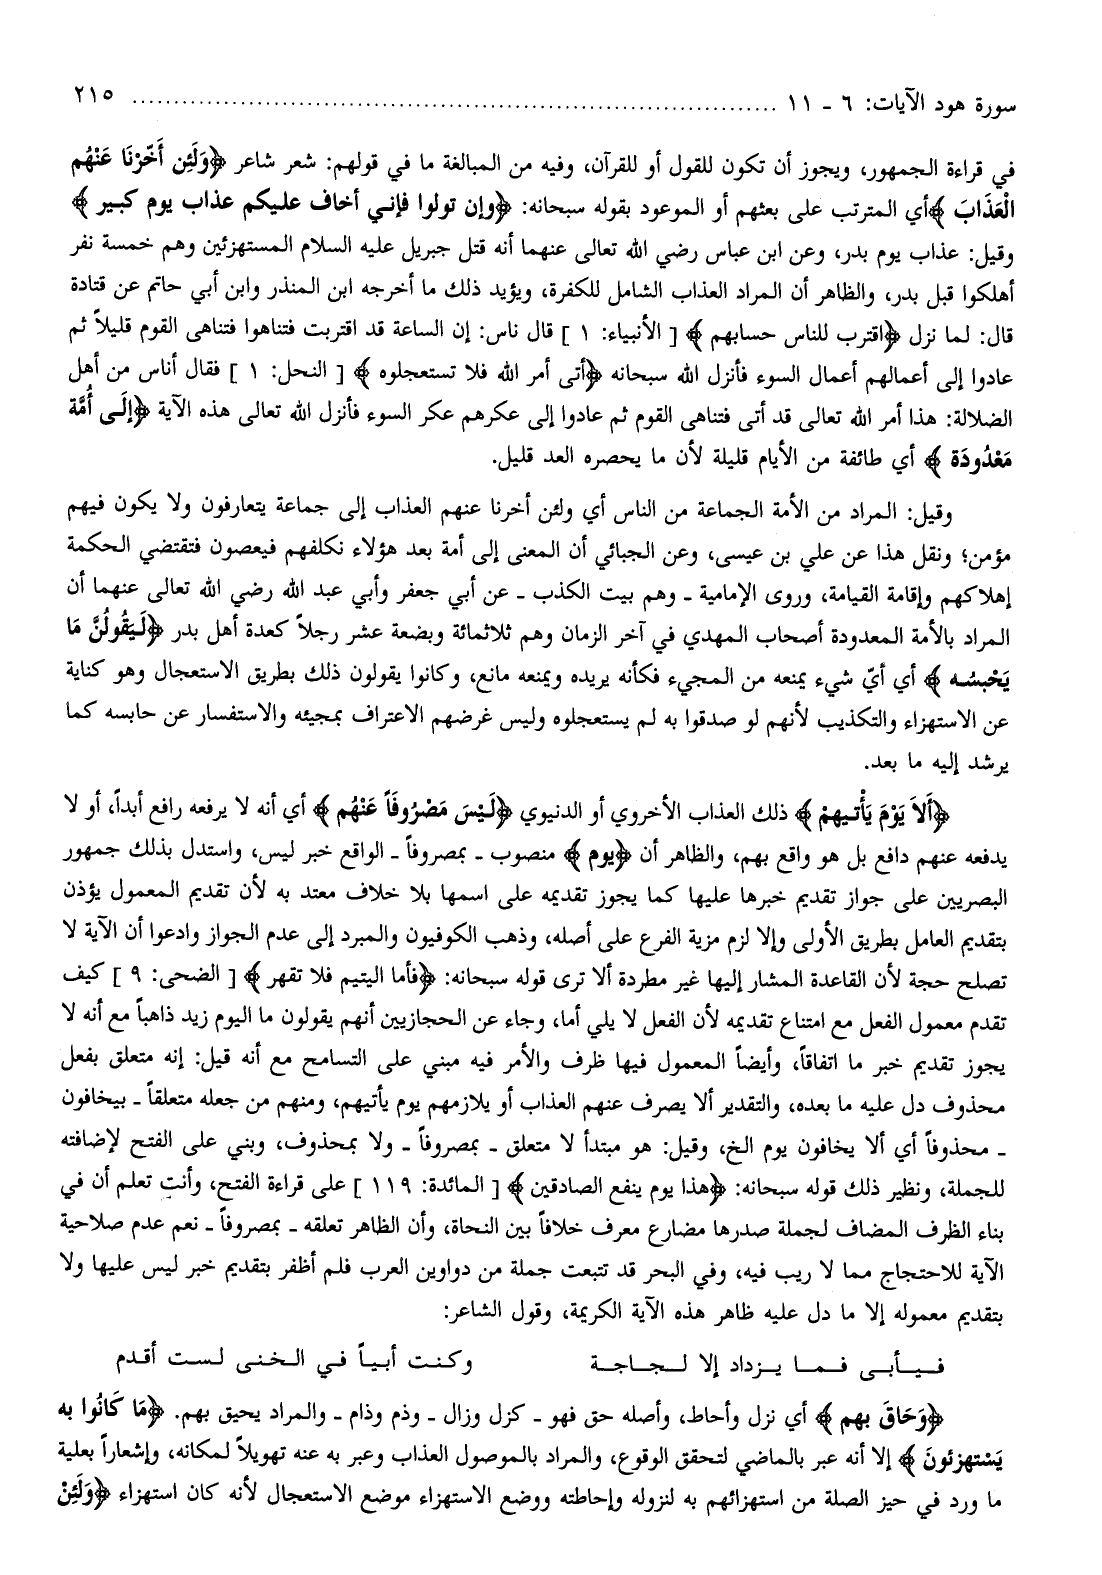 سورة هود الآيات: ٦ - ١١ ........................................ ٢١٥
في قراءة الجمهور، ويجوز أن تكون للقول أو للقرآن، وفيه من المبالغة ما في قولهم: شعر شاعر ﴿وَلَئِن أَخَّرْنَا عَنْهُم
الْعَذَابَ﴾ أي المترتب على بعثهم أو الموعود بقوله سبحانه: ﴿وإن تولوا فإني أخاف عليكم عذاب يوم كبير﴾
وقيل: عذاب يوم بدر، وعن ابن عباس رضي الله تعالى عنهما أنه قتل جبريل عليه السلام المستهزئين وهم خمسة نفر
أهلكوا قبل بدر، والظاهر أن المراد العذاب الشامل للكفرة، ويؤيد ذلك ما أخرجه ابن المنذر وابن أبي حاتم عن قتادة
قال: لما نزل ﴿اقترب للناس حسابهم﴾ [ الأنبياء: ١ ] قال ناس: إن الساعة قد اقتربت فتناهوا فتناهى القوم قليلاً ثم
عادوا إلى أعمالهم أعمال السوء فأنزل الله سبحانه ﴿أتى أمر الله فلا تستعجلوه﴾ [ النحل: ١ ] فقال أناس من أهل
الضلالة: هذا أمر الله تعالى قد أتى فتناهى القوم ثم عادوا إلى عكرهم عكر السوء فأنزل الله تعالى هذه الآية ﴿إِلَى أُمَّة
مَعْدُودَة﴾ أي طائفة من الأيام قليلة لأن ما يحصره العد قليل.
وقيل: المراد من الأمة الجماعة من الناس أي ولئن أخرنا عنهم العذاب إلى جماعة يتعارفون ولا يكون فيهم
مؤمن؛ ونقل هذا عن علي بن عيسى، وعن الجبائي أن المعنى إلى أمة بعد هؤلاء نكلفهم فيعصون فتقتضي الحكمة
إهلاكهم وإقامة القيامة، وروى الإمامية ـ وهم بيت الكذب ـ عن أبي جعفر وأبي عبد الله رضي الله تعالى عنهما أن
المراد بالأمة المعدودة أصحاب المهدي في آخر الزمان وهم ثلاثمائة وبضعة عشر رجلاً كعدة أهل بدر ﴿لَيَقُولُنَّ مَا
يَحْبِسُه﴾ أي أيّ شيء يمنعه من المجيء فكأنه يريده ويمنعه مانع، وكانوا يقولون ذلك بطريق الاستعجال وهو كناية
عن الاستهزاء والتكذيب لأنهم لو صدقوا به لم يستعجلوه وليس غرضهم الاعتراف بمجيئه والاستفسار عن حابسه كما
يرشد إليه ما بعد.
﴿أَلاَ يَوْمَ يَأْتيهمْ﴾ ذلك العذاب الأخروي أو الدنيوي ﴿لَيْسَ مَصْرُوفَاً عَنْهُم﴾ أي أنه لا يرفعه رافع أبداً، أو لا
يدفعه عنهم دافع بل هو واقع بهم، والظاهر أن ﴿يوم﴾ منصوب ـ بمصروفاً ـ الواقع خبر ليس، واستدل بذلك جمهور
البصريين على جواز تقديم خبرها عليها كما يجوز تقديمه على اسمها بلا خلاف معتد به لأن تقديم المعمول يؤذن
بتقديم العامل بطريق الأولى وإلا لزم مزية الفرع على أصله، وذهب الكوفيون والمبرد إلى عدم الجواز وادعوا أن الآية لا
تصلح حجة لأن القاعدة المشار إليها غير مطردة ألا ترى قوله سبحانه: ﴿فأما اليتيم فلا تقهر﴾ [ الضحى: ٩ ] كيف
تقدم معمول الفعل مع امتناع تقديمه لأن الفعل لا يلي أما، وجاء عن الحجازيين أنهم يقولون ما اليوم زيد ذاهباً مع أنه لا
يجوز تقديم خبر ما اتفاقاً، وأيضاً المعمول فيها ظرف والأمر فيه مبني على التسامح مع أنه قيل: إنه متعلق بفعل
محذوف دل عليه ما بعده، والتقدير ألا يصرف عنهم العذاب أو يلازمهم يوم يأتيهم، ومنهم من جعله متعلقاً ـ بيخافون
ـ محذوفاً أي ألا يخافون يوم الخ، وقيل: هو مبتدأ لا متعلق ـ بمصروفاً ـ ولا بمحذوف، وبني على الفتح لإضافته
للجملة، ونظير ذلك قوله سبحانه: ﴿هذا يوم ينفع الصادقين﴾ [ المائدة: ١١٩ ] على قراءة الفتح، وأنت تعلم أن في
بناء الظرف المضاف لجملة صدرها مضارع معرف خلافاً بين النحاة، وأن الظاهر تعلقه ـ بمصروفاً ـ نعم عدم صلاحية
الآية للاحتجاج مما لا ريب فيه، وفي البحر قد تتبعت جملة من دواوين العرب فلم أظفر بتقديم خبر ليس عليها ولا
بتقديم معموله إلا ما دل عليه ظاهر هذه الآية الكريمة، وقول الشاعر:
فيأبى فما يزداد إلا لجاجة وكنت أبياً في الخنى لست أقدم
﴿وَحَاقَ بهم﴾ أي نزل وأحاط، وأصله حق فهو ـ كزل وزال ـ وذم وذام ـ والمراد يحيق بهم. ﴿مَا كَانُوا به
يَسْتهزئونَ﴾ إلا أنه عبر بالماضي لتحقق الوقوع، والمراد بالموصول العذاب وعبر به عنه تهويلاً لمكانه، وإشعاراً بعلية
ما ورد في حيز الصلة من استهزائهم به لنزوله وإحاطته ووضع الاستهزاء موضع الاستعجال لأنه كان استهزاء ﴿وَلَئِنْ